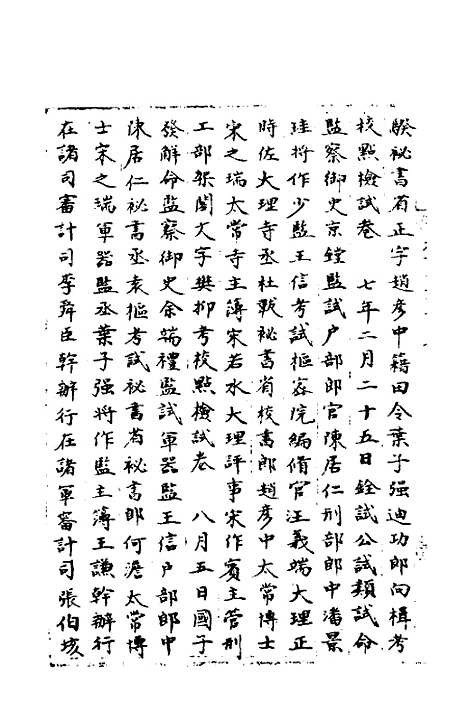 騤祕書省正字趙彥中籍田令葉子强迪功郎向楫考
校㸃檢試卷　七年二月二十五日銓試公試類試命
監察御史京鏜監試户部郎官陳居仁刑部郎中潘景
珪將作少監王信考試樞宻院編脩官汪義端大理正
時佐大理寺丞杜戩祕書省校書郎趙彥中太常博士
宋之瑞太常寺主薄宋若水大理評事宋作賓主管刑
工部架閣文字樊抑考校㸃檢試卷　八月五日國子
發解命監察御史余端禮監試軍器監王信户部郎中
陳居仁祕書丞袁樞考試祕書省祕書郎何澹太常博
士宋之瑞軍器監丞葉子强將作監主簿王謙幹辦行
在諸司審計司李舜臣幹辦行在諸軍審計司張伯垓